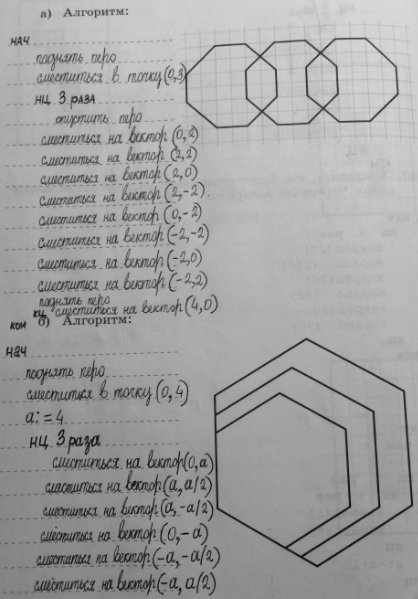 а) Алгоритм:
нач
поднять перо
сместиться в точку (0,3)
нц 3 раза
опустить перо
сместиться на вектор (0,2)
сместиться на вектор (2,2)
сместиться на вектор (2,0)
сместиться на вектор (2,-2)
сместиться на вектор (0,-2)
сместиться на вектор (-2,-2)
сместиться на вектор (-2,0)
сместиться на вектор (-2,2)
поднять перо
кц сместиться на вектор (4,0)
кон
б) Алгоритм:
нач
поднять перо
сместиться в точку (0,4)
a:=4
нц 3 раза
сместиться на вектор (0,a)
сместиться на вектор (a,a/2)
сместиться на вектор (a,-a/2)
сместиться на вектор (0,-a)
сместиться на вектор (-a,-a/2)
сместиться на вектор (-a,a/2)